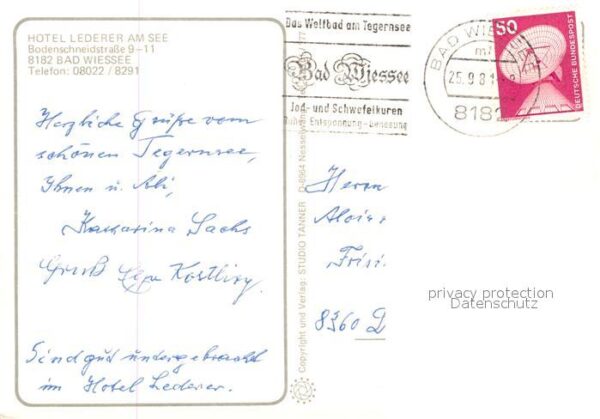 HOTEL LEDERER AM SEE
Bodenschneidstraße 9-11
8182 BAD WIESSEE
Telefon: 08022 / 8291
Herzliche Grüße vom
schönen Tegernsee,
Ihnen u.
Katharina Sachs
Gruß
Sind gud untergebracht
im Hotel Lederer.
Copyright und Verlag: STUDIO TANNER D-8964 Nesselwang
Das Weltbad am Tegernsee
Bad Wiessee
Jod- und Schwefelkuren
Entspannung - Genesung
BAD WIESSEE
25.9.81
8182
50
DEUTSCHE BUNDESPOST
Herrn
Alois
8360 D
privacy protection
Datenschutz